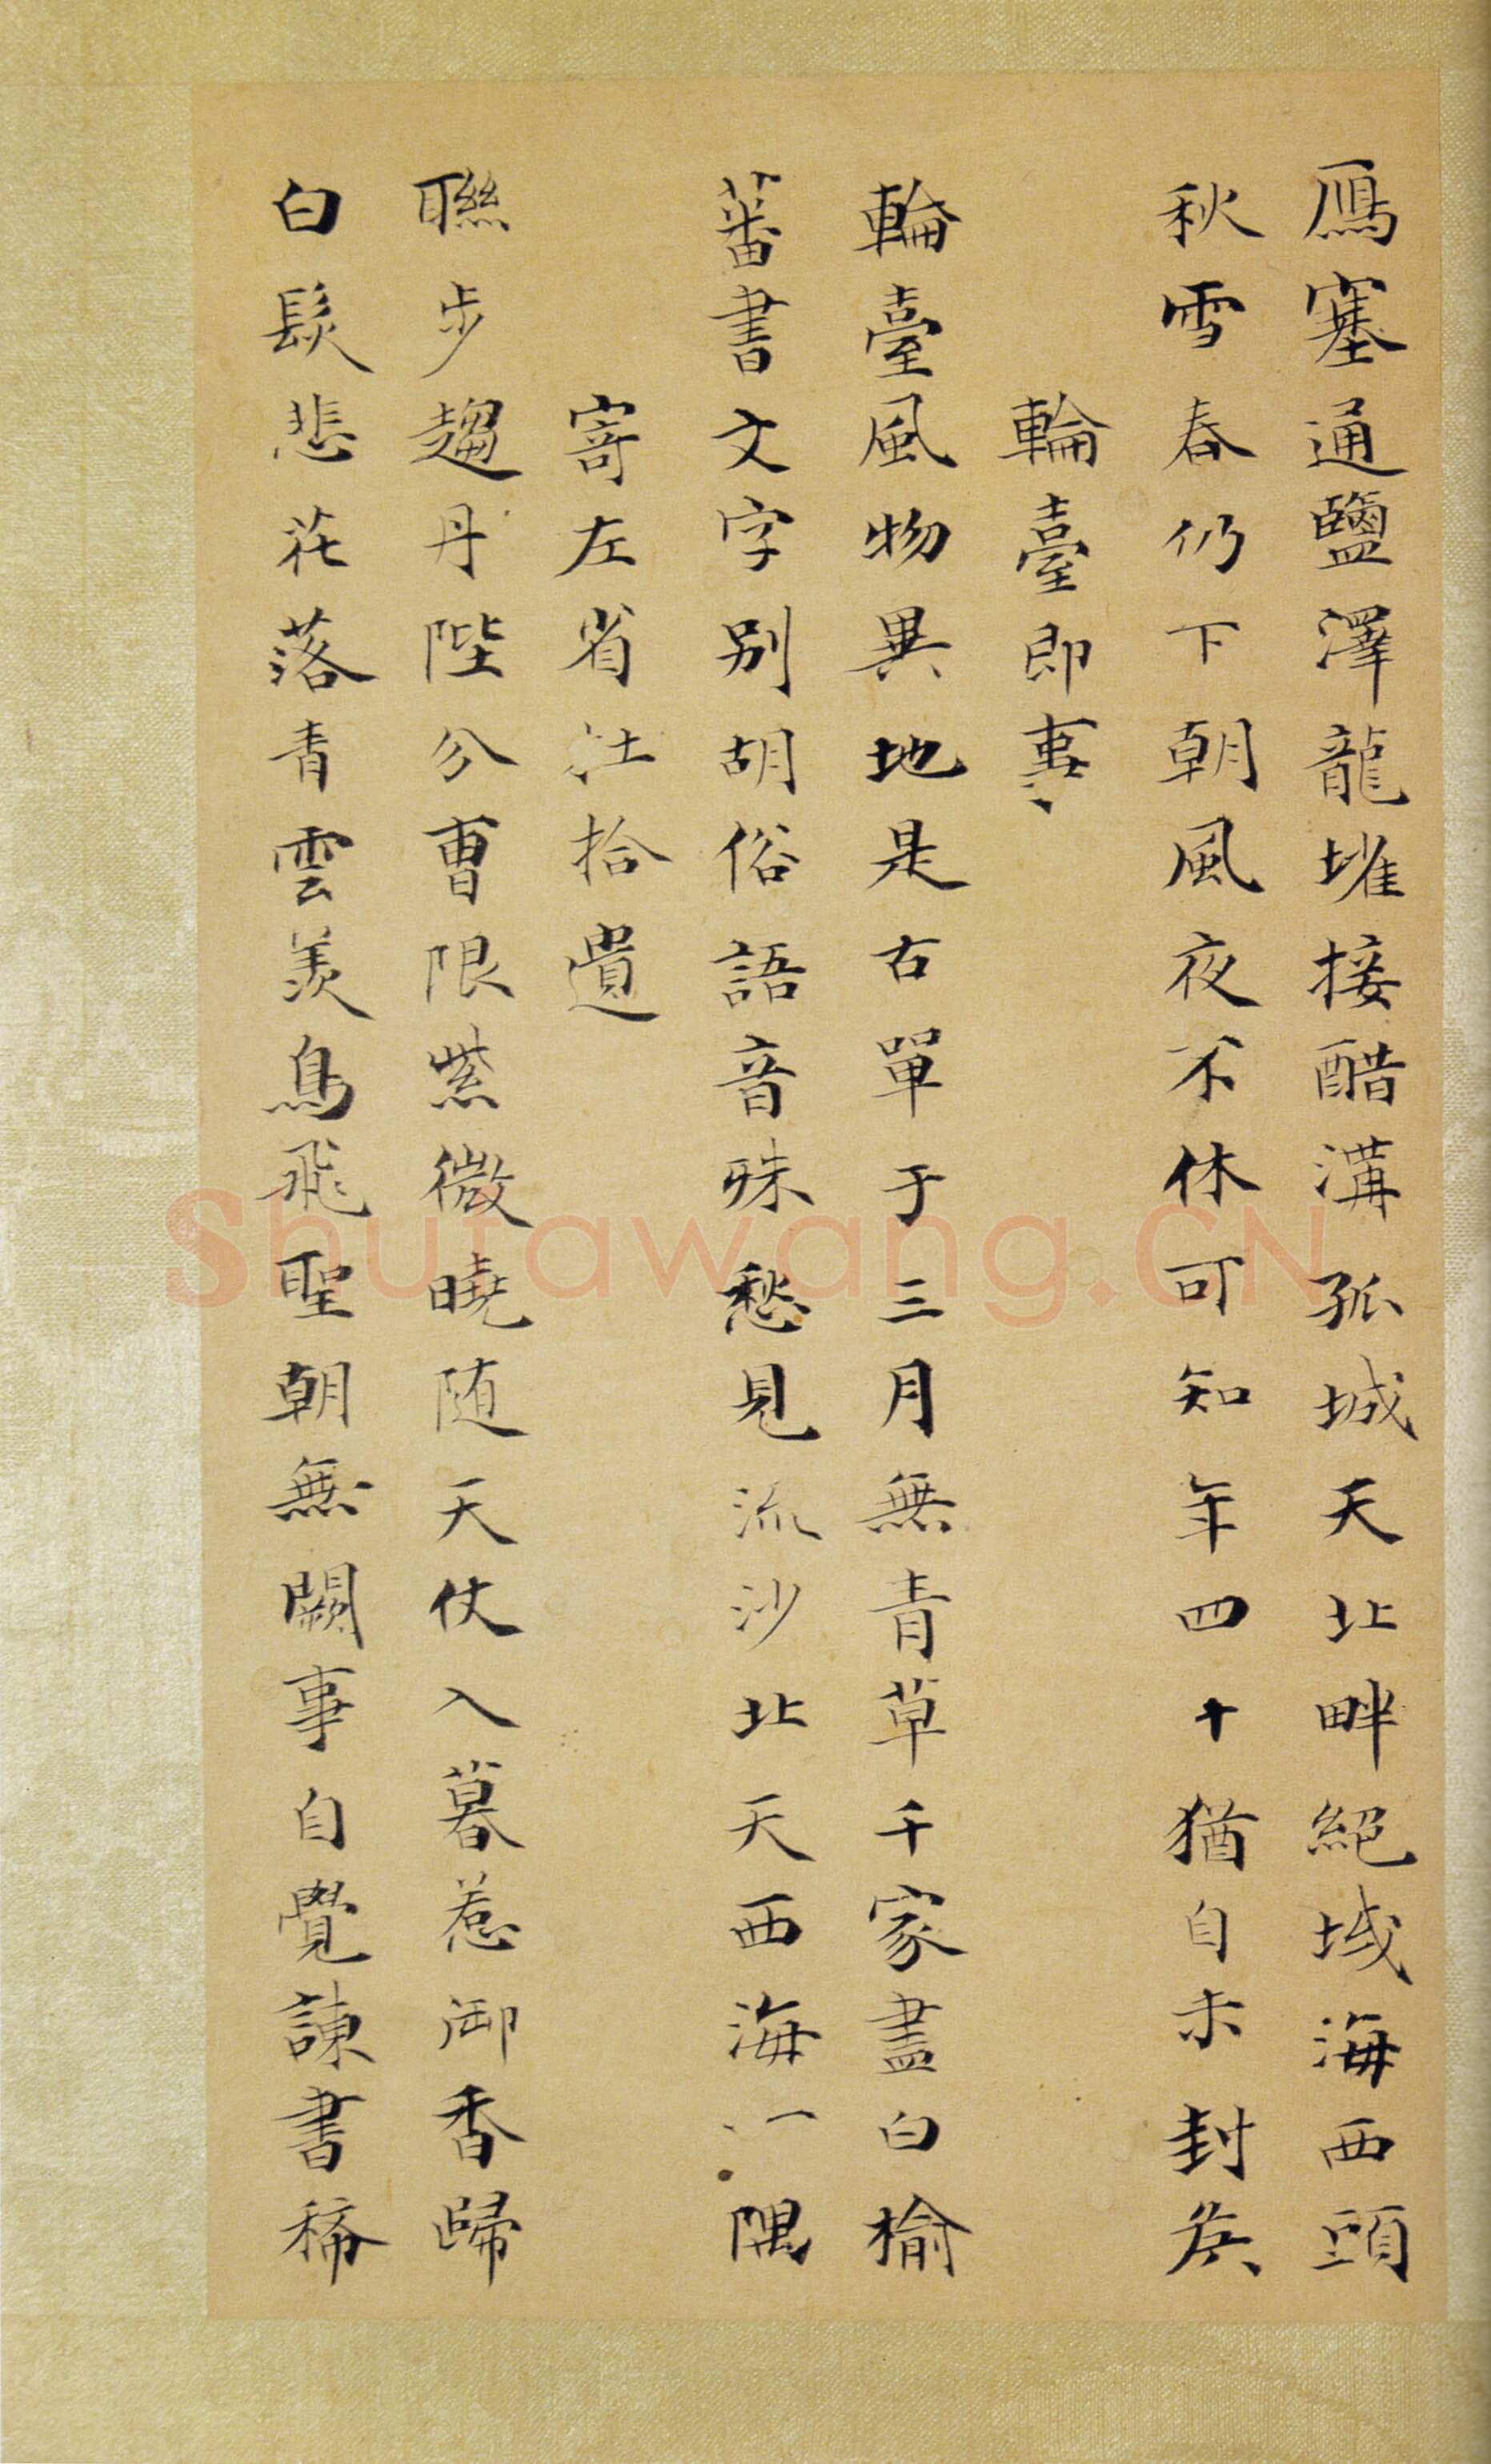 鴈塞通鹽澤龍堆接醋溝孤城天北畔絕域海西頭
秋雪春仍下朝風夜不休可知年四十猶自未封矦
輪臺即事
輪臺風物異地是古單于三月無青草千家盡白榆
蕃書文字別胡俗語音殊愁見流沙北天西海一隅
寄左省杜拾遺
聯步趨丹陛分曹限紫微曉隨天仗入暮惹御香歸
白髮悲花落青雲羨鳥飛聖朝無闕事自覺諫書稀
Shufawang.CN